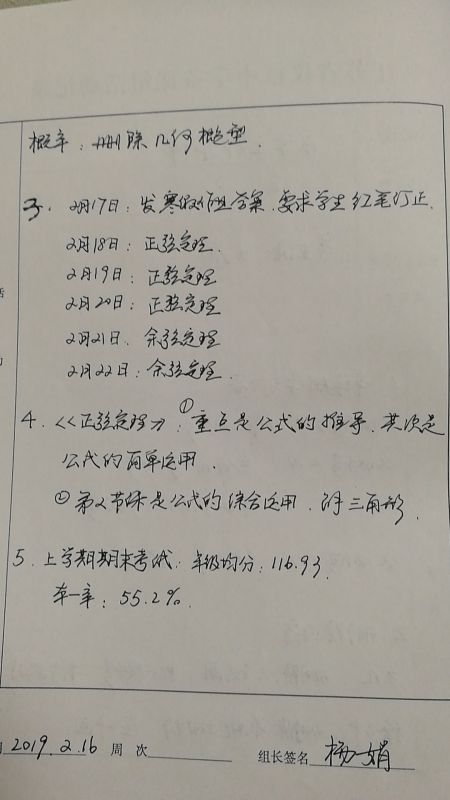 概率：删除几何概型.
3. 2月17日：发寒假作业答案.要求学生红笔订正.
2月18日：正弦定理.
2月19日：正弦定理
2月20日：正弦定理
2月21日.余弦定理
2月22日：余弦定理.
4.《正弦定理》：①重点是公式的推导.其次是
公式的简单运用.
②第2节课是公式的综合运用.解三角形.
5.上学期期末考试.年级均分：116.93.
本一率：55.2%.
2019.2.16 周 次 组长签名 杨娟